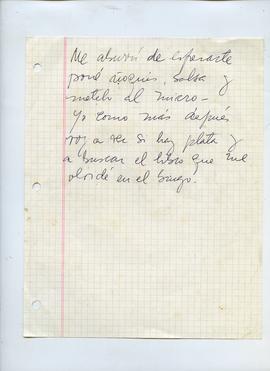 Me aburrí de esperarte
poné ñoquis, salsa y
metelo al micro-
Yo como más después
voy a ver si hay plata y
a buscar el libro que me
olvidé en el bingo.